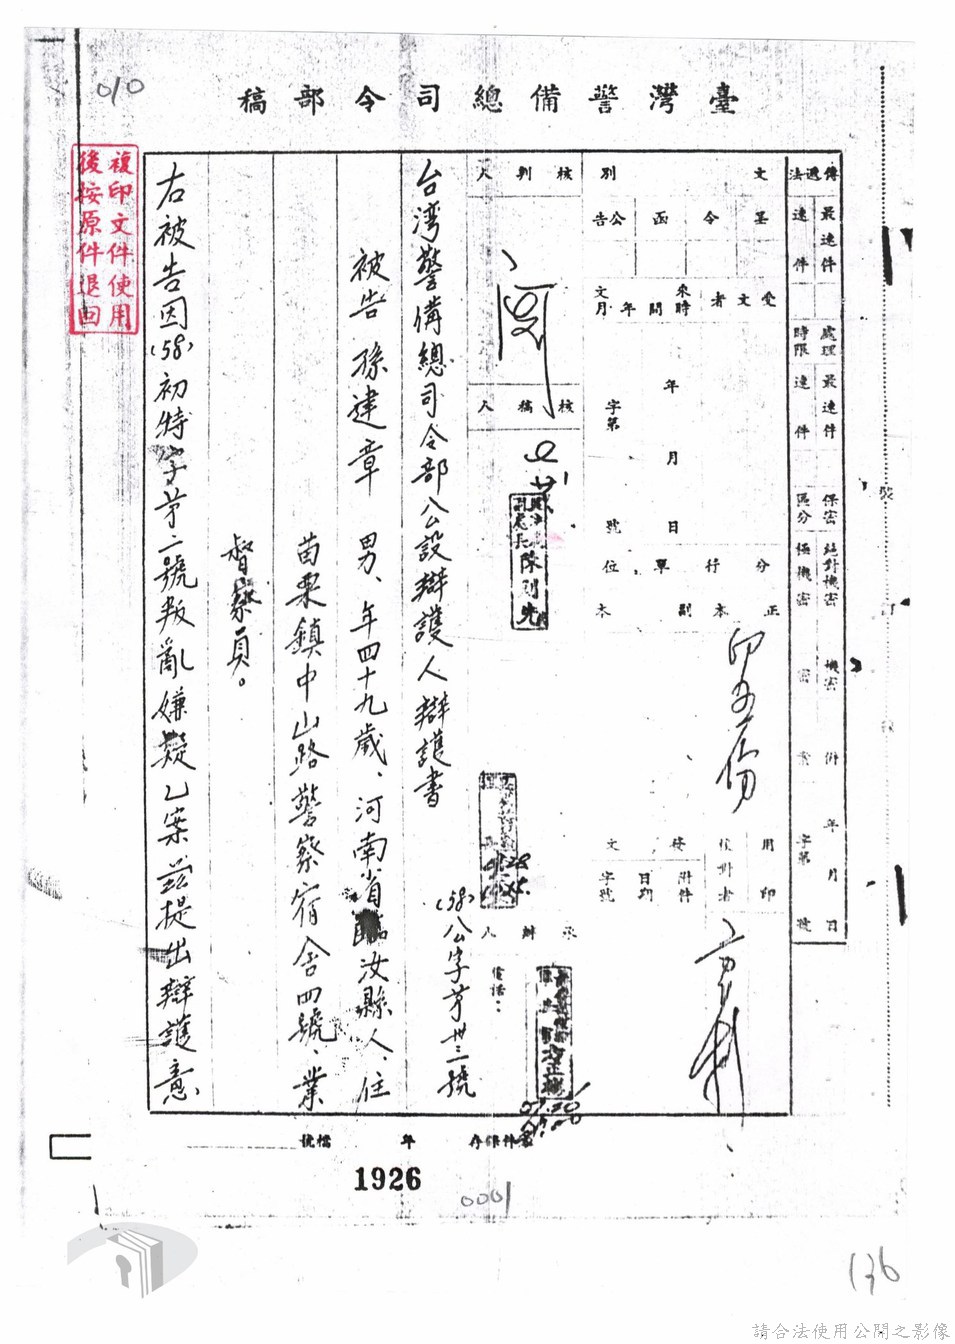 010
臺灣警備總司令部稿
複印文件使用
後按原件退回
傳遞法 最速件 速件
處理時限 最速件 速件
保密區分 絕對機密 極機密 機密 密
附 年 月 日
字第 號
文別
簽 令 函 公告
受文者
來文時間 年 月
年 月 日
字第 號
分行單位
正本 副本
印五份
用印
校對者
繕文
附件 日期 字號
核判人
核稿人
副處長 陳則先
承辦人
電話：
台湾警備總司令部公設辯護人辯護書
(58)公字第卅三號
被告 孫建章 男、年四十九歲、河南省臨汝縣人、住
苗栗鎮中山路警察宿舍四號、業
督察員。
右被告因(58)初特字第二號叛亂嫌疑乙案茲提出辯護意
裝
訂
案件保存 年 檔號
1926
0001
136
請合法使用公開之影像